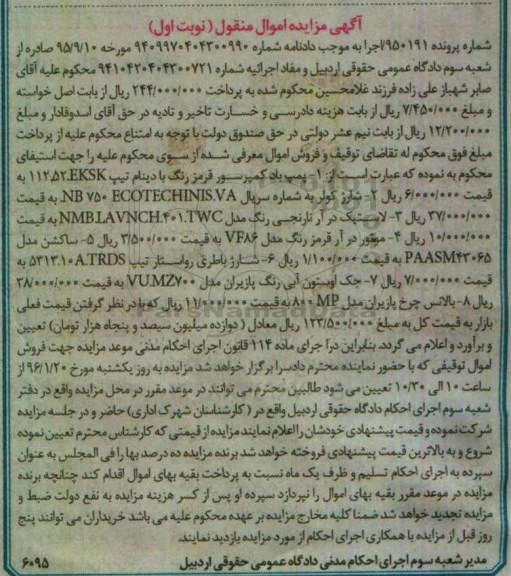 آگهی مزایده اموال منقول (نوبت اول)
شماره پرونده ۹۵۰۱۹۱/اجرا به موجب دادنامه شماره ۹۴۰۹۹۷۰۴۰۴۳۰۰۹۹۰ مورخه ۹۵/۹/۱۰ صادره از
شعبه سوم دادگاه عمومی حقوقی اردبیل و مفاد اجرائیه شماره ۹۴۱۰۴۲۰۴۰۴۳۰۰۷۲۱ محکوم علیه آقای
صابر شهباز علی زاده فرزند غلامحسین محکوم شده به پرداخت ۲۴۴/۰۰۰/۰۰۰ ریال از بابت اصل خواسته
و مبلغ ۷/۴۵۰/۰۰۰ ریال از بابت هزینه دادرسی و خسارت تاخیر و تادیه در حق آقای اسدوفادار و مبلغ
۱۲/۲۰۰/۰۰۰ ریال از بابت نیم عشر دولتی در حق صندوق دولت با توجه به امتناع محکوم علیه از پرداخت
مبلغ فوق محکوم له تقاضای توقیف و فروش اموال معرفی شده از سوی محکوم علیه را جهت استیفای
محکوم به نموده که عبارت است از: ۱- پمپ باد کمپرسور قرمز رنگ با دینام تیپ ۱۱۲,۵۲.EKSK به
قیمت ۶/۰۰۰/۰۰۰ ریال ۲- شارژ کولر به شماره سریال NB ۷۵۰ ECOTECHINIS.VA. به قیمت
۳۷/۰۰۰/۰۰۰ ریال ۳- لاستیک در آر نارنجی رنگ مدل NMB.LAVNCH.۴۰۱.TWC به قیمت
۱۰/۰۰۰/۰۰۰ ریال ۴- موتور در آر قرمز رنگ مدل VF۸۶ به قیمت ۳/۵۰۰/۰۰۰ ریال ۵- ساکشن مدل
PAASM۴۳۰۶۵ به قیمت ۱/۱۰۰/۰۰۰ ریال ۶- شارژ باطری رواستار تیپ ۵۳۱۳.۱۰A.TRDS به
قیمت ۷/۰۰۰/۰۰۰ ریال ۷- جک اوپستون آبی رنگ پازیران مدل VU.MZ۷۰۰ به قیمت ۳۸/۰۰۰/۰۰۰
ریال ۸- بالانس چرخ پازیران مدل ۸۰۰MP به قیمت ۱۱/۰۰۰/۰۰۰ ریال که با در نظر گرفتن قیمت فعلی
بازار به قیمت کل به مبلغ ۱۲۳/۵۰۰/۰۰۰ ریال معادل (دوازده میلیون سیصد و پنجاه هزار تومان) تعیین
و برآورد و اعلام می گردد. بنابراین درا جرای ماده ۱۱۴ قانون اجرای احکام مدنی موعد مزایده جهت فروش
اموال توقیفی که با حضور نماینده محترم دادسرا برگزار خواهد شد مزایده به روز یکشنبه مورخ ۹۶/۱/۲۰ از
ساعت ۱۰ الی ۱۰/۳۰ تعیین می شود طالبین محترم می توانند در موعد مقرر در محل مزایده واقع در دفتر
شعبه سوم اجرای احکام دادگاه حقوقی اردبیل واقع در (کارشناسان شهرک اداری) حاضر و در جلسه مزایده
شرکت نموده و قیمت پیشنهادی خودشان را اعلام نمایند مزایده از قیمتی که کارشناس محترم تعیین نموده
شروع و به بالاترین قیمت پیشنهادی فروخته خواهد شد برنده مزایده ده درصد بها را فی المجلس به عنوان
سپرده به اجرای احکام تسلیم و ظرف یک ماه نسبت به پرداخت بقیه بهای اموال اقدام کند چنانچه برنده
مزایده در موعد مقرر بقیه بهای اموال را نپردازد سپرده او پس از کسر هزینه مزایده به نفع دولت ضبط و
مزایده تجدید خواهد شد ضمنا کلیه مخارج مزایده بر عهده محکوم علیه می باشد خریداران می توانند پنج
روز قبل از مزایده با همکاری اجرای احکام از مورد مزایده بازدید نمایند.
مدیر شعبه سوم اجرای احکام مدنی دادگاه عمومی حقوقی اردبیل ۶۰۹۵
ParsNamadData